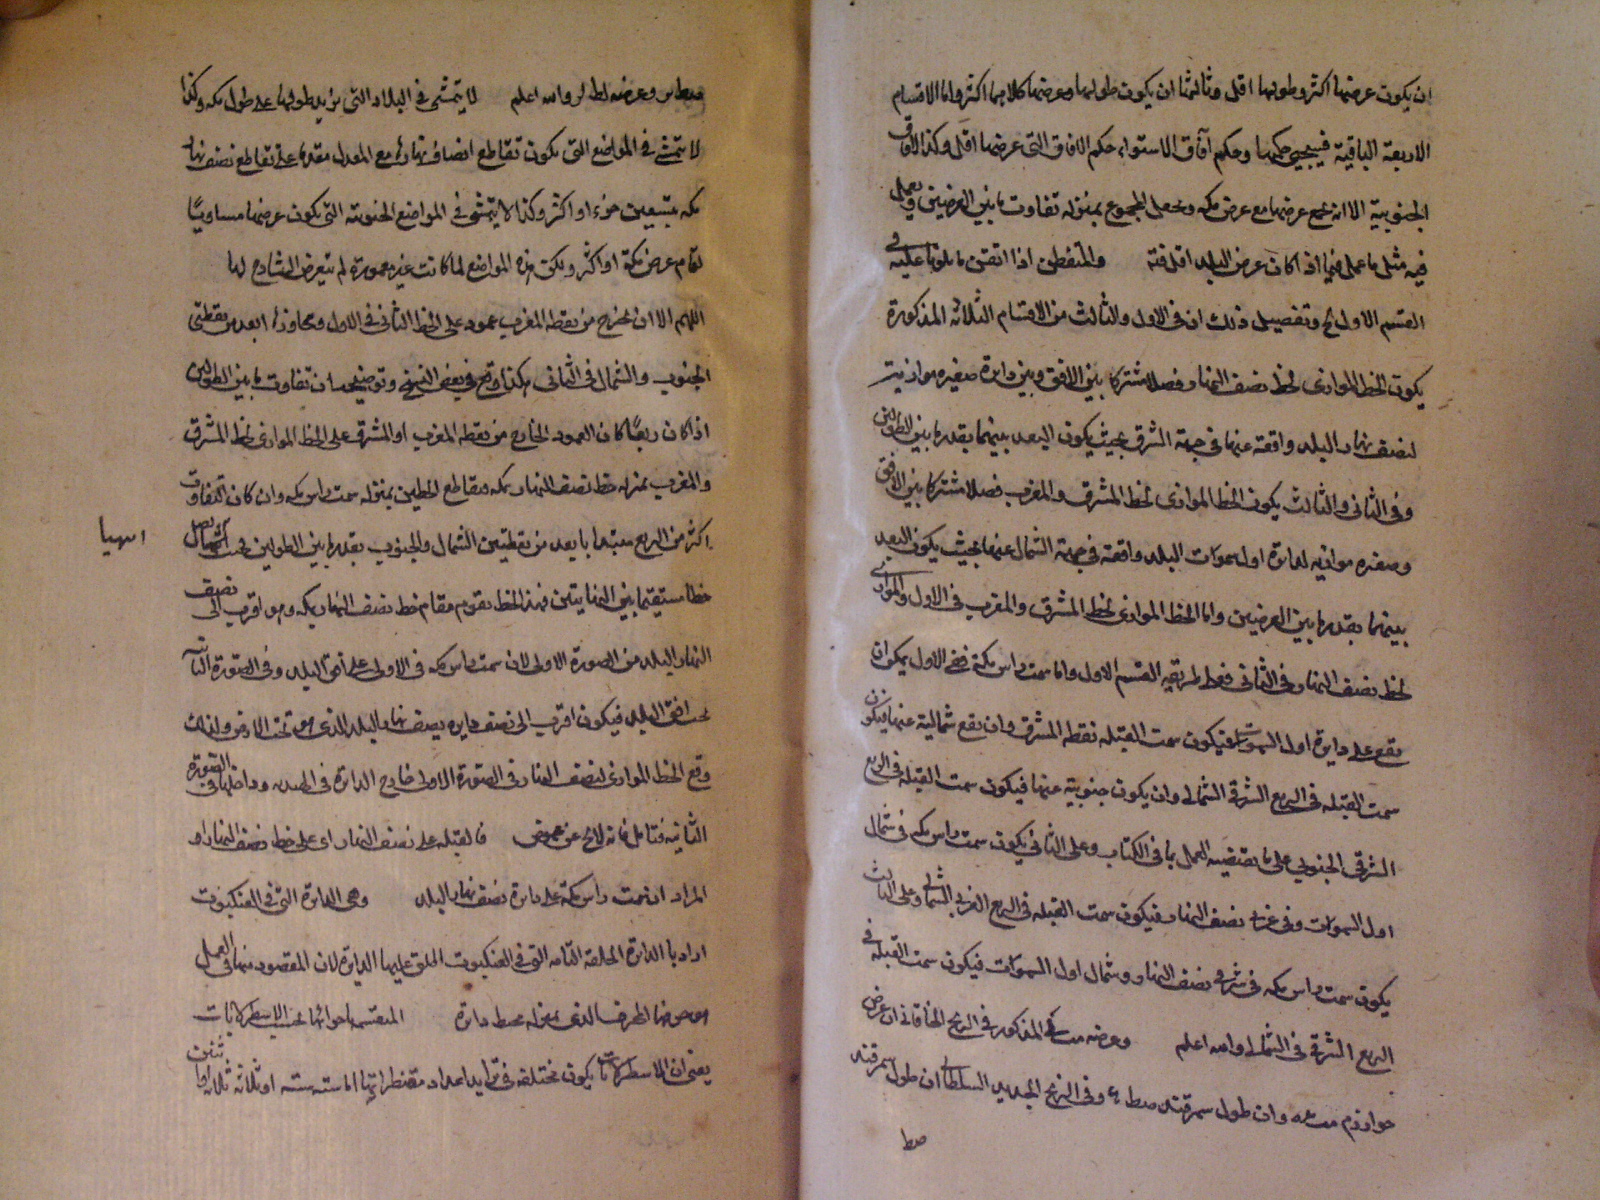 ان يكون عرضها اكثر وطولها اقل وثالثها ان يكون طولها وعرضها كلاهما اكثر واما الاقسام
الاربعة الباقية فسيجيئ حكمها وحكم آفاق الاستواء حكم الافاق التى عرضها اقل وكذا الآفاق
الجنوبية الا انه يجمع عرضها مع عرض مكه ويجعل المجموع بمنزلة تفاوت ما بين العرضين ويعمل
فيه مثل ما عمل فيما اذا كان عرض البلد اقل فتد والمتفطن اذا اتقن ما تلونا عليه فى
القسم الاول الخ وتفصيل ذلك ان فى الاول والثالث من الاقسام الثلاثه المذكورة
يكون الخط الموازى لخط نصف النهار فصلا مشتركا بين الافق وبين دايرة صغيره موازية
لنصف نهار البلد واقعة عنها فى جهة الشرق بحيث يكون البعد بينهما بقدر ما بين الطولين
وفى الثانى والثالث يكون الخط الموازى لخط المشرق والمغرب فصلا مشتركا بين الافق
وصغيره موازيه لدائرة اول سموات البلد واقعة فى جهة الشمال عنها بحيث يكون البعد
بينهما بقدر ما بين العرضين واما الخط الموازى لخط المشرق والمغرب فى الاول والموازى
لخط نصف النهار فى الثانى فعلى طريقة القسم الاول واما سمت راس مكة ففى الاول يمكن ان
يقع على دايرة اول السموت فيكون سمت القبله نقطة المشرق وان يقع شمالية عنها فيكون
سمت القبله فى الربع الشرقى الشمالى وان يكون جنوبية عنها فيكون سمت القبله فى الربع
الشرقى الجنوبى على ما يقتضيه العمل بما فى الكتاب وعلى الثانى يكون سمت راس مكه فى شمال
اول السموات وفى غربى نصف النهار فيكون سمت القبله فى الربع الغربى الشمالى وعلى الثالث
يكون سمت راس مكه فى شرقى نصف النهار وشمال اول السموات فيكون سمت القبله فى
الربع الشرقى فى الشمالى والله اعلم وعرضه المذكور فى الزيج الخاقانى ان عرض
خوارزم وان طول سمرقند صط وفى الزيج الجديد السلطانى ان طول سمرقند
صط
وعرضه لط لر والله اعلم لا يتمشى فى البلاد التى يزيد طولها على طول مكه وكذا
لا يتمشى فى المواضع التى يكون تقاطع انصاف نهارها مع المعدل مقدما على تقاطع نصف نهار
مكه بتسعين جزء او اكثر وكذا لا يتمشى فى المواضع الجنوبية التى يكون عرضها مساويًا
لتمام عرض مكة او اكثر ولكن هذه المواضع لما كانت غير معمورة لم يتعرض الشارح لها
اللهم الا ان يخرج من نقطة المغرب عمود على الخط الثانى فى الاول ومحاوزة ابعد من نقطتى
الجنوب والشمال فى الثانى هكذا وقع فى بعض النسخ وتوضيحه ان تفاوت ما بين الطولين
اذا كان ربعًا كان العمود الخارج من نقطة المغرب او المشرق على الخط الموازى لخط المشرق
والمغرب بمنزله خط نصف النهار بمكه وتقاطع الخطين بمنزله سمت راس مكه وان كان التفاوت
اكثر من الربع مبتدا بابعد من نقطتين الشمال والجنوب بقدر ما بين الطولين
انتهيا
خطا مستقيما بين النهايتين فهذا الخط يقوم مقام خط نصف النهار بمكه وهو اقرب الى نصف
النهار البلد من الصورة الاولى لان سمت راس مكه فى الاولى على افق البلد وفى الصورة الثانية
تحت افق البلد فيكون اقرب الى نصف دايره نصف نهار البلد الذى هو تحت الارض ولذلك
وقع الخط الموازى لنصف النهار فى الصورة الاولى خارج الدائرة وداخلها فى الصورة
الثانيه فتامل فانه لا يخ عن غموض فالقبله على نصف النهار اى على خط نصف النهار او
المراد ان سمت راس مكة على دايرة نصف نهار البلد وهى الدايرة التى فى العنكبوت
اراد بالدائرة الحلقه التامه التى فى العنكبوت اطلق عليها الدايرة لان المقصود منها فى العمل
هو طرفها الذى بمنزله محيط دايرة المنقسمه اجزائها بحسب الاسطرلابات
يعنى ان الاسطرلابات يكون مختلفه فى تزايد اعداد مقنطراتها اما سته سته او ثلاثة ثلاثة او اثنين